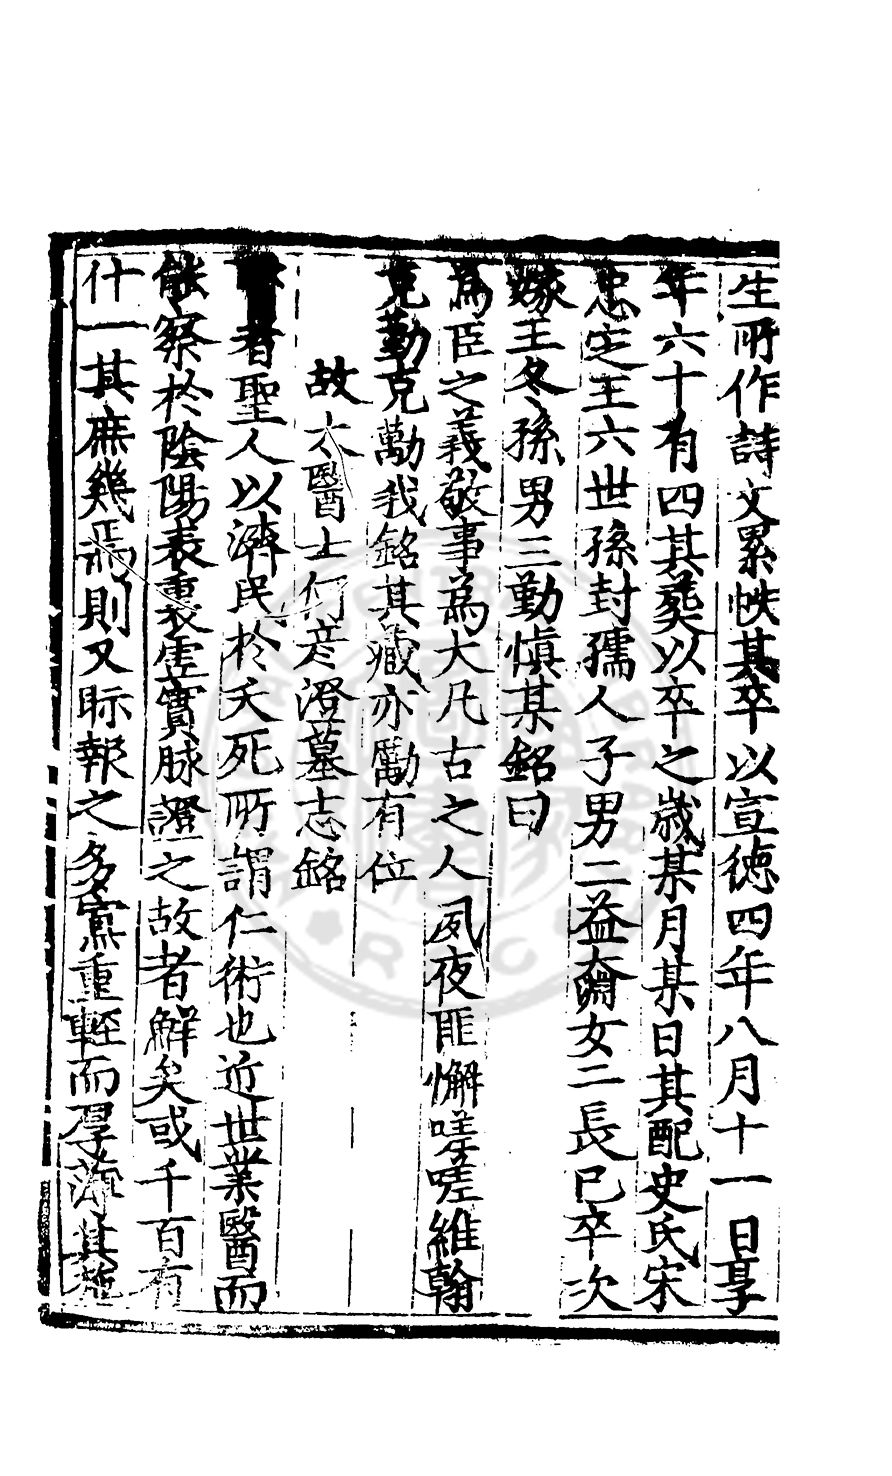 生所作詩文累帙其卒以宣德四年八月十一日享
年六十有四其葬以卒之歲某月某日其配史氏宋
忠定王六世孫封孺人子男二益奫女二長已卒次
嫁王冬孫男三勤慎某銘曰
為臣之義敬事為大凡古之人夙夜匪懈嗟嗟維翰
克勤克勱我銘其藏亦勵有位
故太醫士何彥澄墓志銘
者聖人以濟民於夭死所謂仁術也近世業醫而
能察於陰陽表裏虛實脉證之故者鮮矣或千百有
什一其庶幾焉則又眎報之多寡重輕而厚薄其施